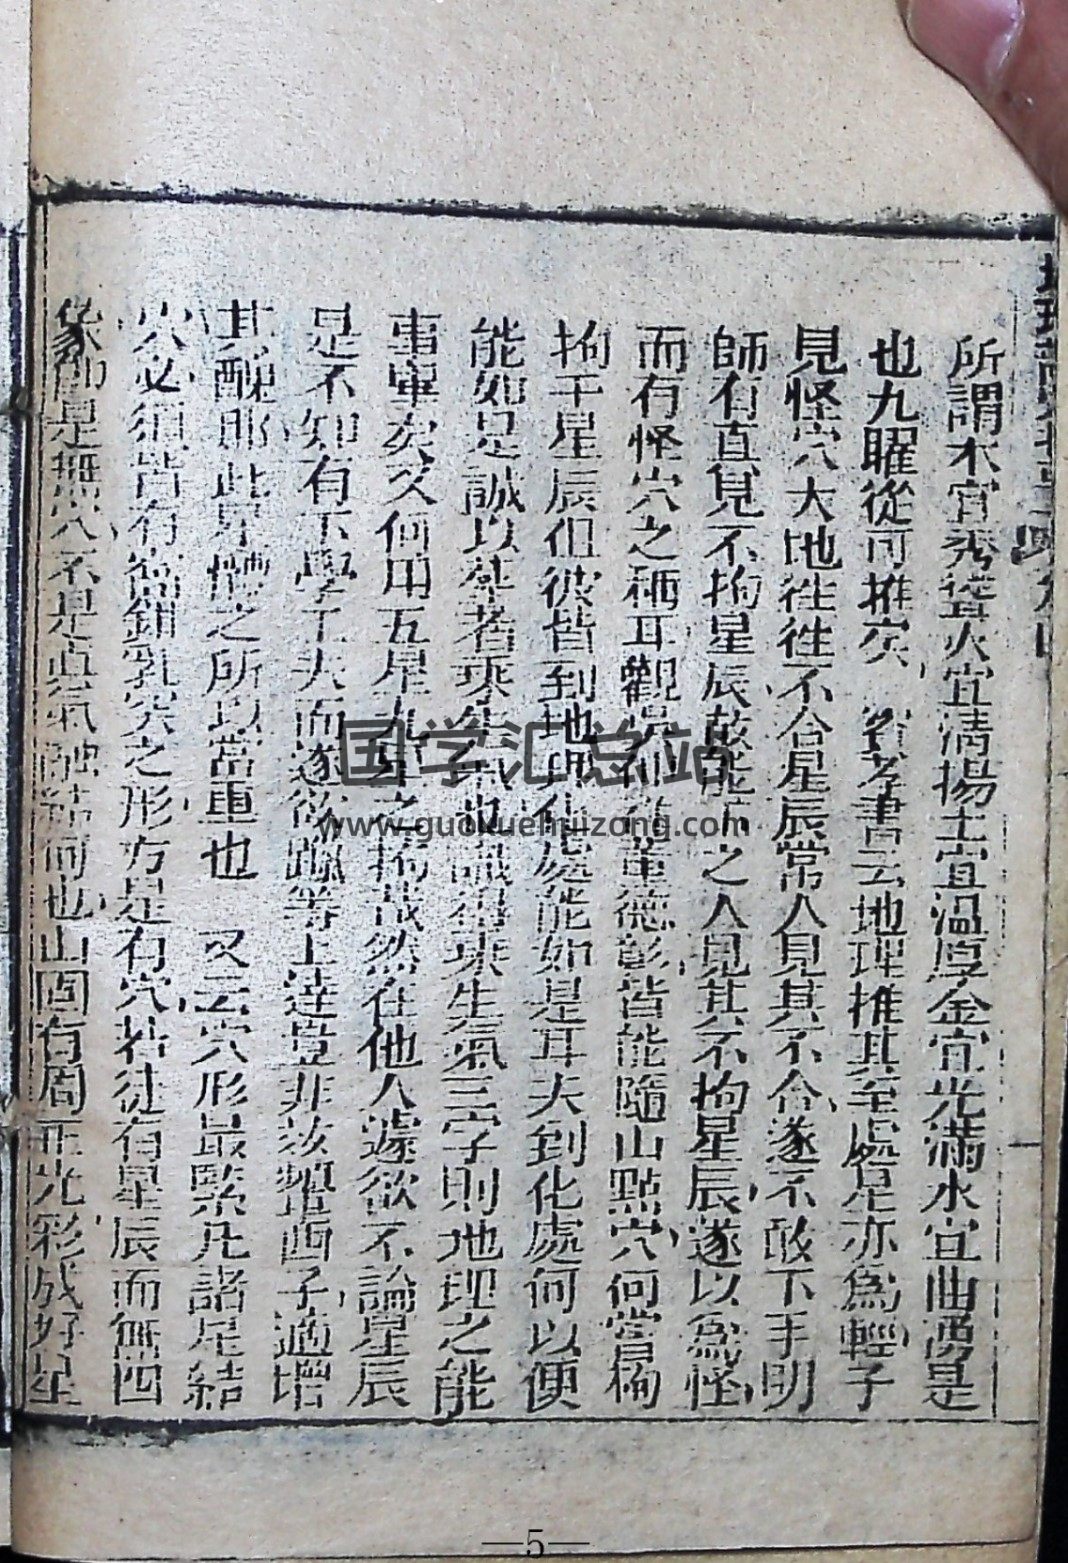 所謂木宜秀聳火宜清揚土宜溫厚金宜光滿水宜曲湧是
也九曜從可推矣 賓之書云地理推其至處是亦為輕子
見怪穴大地往往不合星辰常人見其不合遂不敢下手明
師有直見不拘星辰故能下之人見其不拘星辰遂以為怪
而有怪穴之稱耳觀吳仲 董德彰皆能隨山點穴何嘗拘
拘于星辰但彼皆到地 化處能如是耳夫到化處何以便
能如是誠以葬者乘生氣也識得乘生氣三字則地理之能
事畢矣又何用五星九星之拘哉然在他人遽欲不論星辰
是不知有下學工夫而遂欲躐等上達豈非效顰西子適增
其醜耶此星體之所以當重也 又云穴形最緊凡諸足結
穴必須皆有窩鉗乳突之形方是有穴若徒有星辰而無四
象即是無穴不是真氣融結何也山固有周正光彩成好星
国学汇总站
www.guoxuehuizong.com
—5—